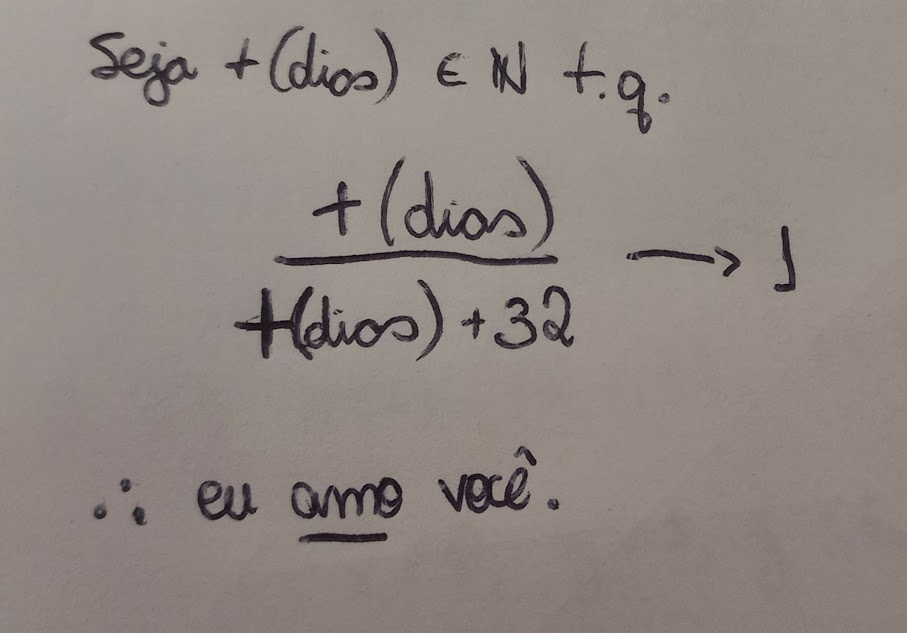 Seja t(dias) ∈ ℕ t.q.
t(dias)
t(dias) + 32
→ 1
∴ eu amo você.